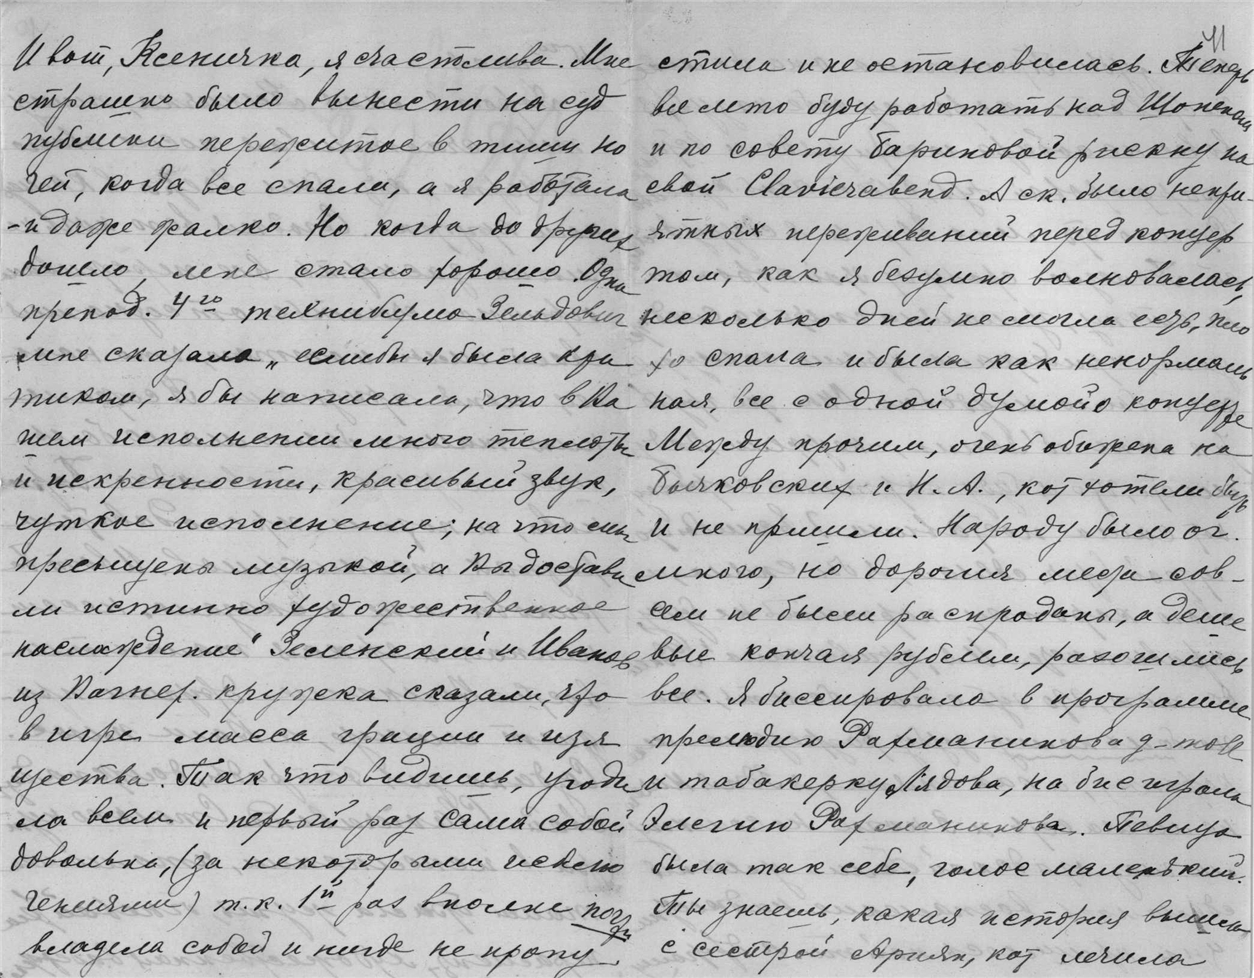 И вот, Ксеничка, я счастлива. Мне
страшно было вынести на суд
публики пережитое в тиши но
чей, когда все спали, а я работала
- и даже жалко. Но когда до других
дошло, мне стало хорошо. Одна
препод. 4го техникума Зельдович
мне сказала „если бы я была кри
тиком, я бы написала, что в Ва
шем исполнении много теплоты
и искренности, красивый звук,
чуткое исполнение; на что мы
пресыщены музыкой, а Вы достави
ли истинно художественное
наслаждение“ Зеленский и Иванов
из Вагнер. кружка сказали, что
в игре масса грации и изя
щества. Так что видишь, угоди
ла всем и первый раз сама собой
довольна, (за некоторыми исклю
чениями) т.к. 1й раз вполне почти
владела собой и нигде не пропу
11
стила и не остановилась. Теперь
все лето буду работать над Шопеном
и по совету Бариновой рискну на
свой Clavierabend. А ск. было непри-
ятных переживаний перед концер
том, как я безумно волновалась,
несколько дней не могла есть, пло
хо спала и была как ненормаль
ная, все с одной думой о концерте
Между прочим, очень обижена на
Бычковских и Н.А., кот хотели быть
и не пришли. Народу было ог.
много, но дорогия места сов-
сем не были распроданы, а деше
вые кончая рублем, разошлись
все. Я биссировала в программе
прелюдию Рахманинова
и табакерку Лядова, на бис играла
Элегию Рахманинова. Певица
была так себе, голос маленький.
Ты знаешь, какая история вышла
с сестрой Ариян, кот лечила